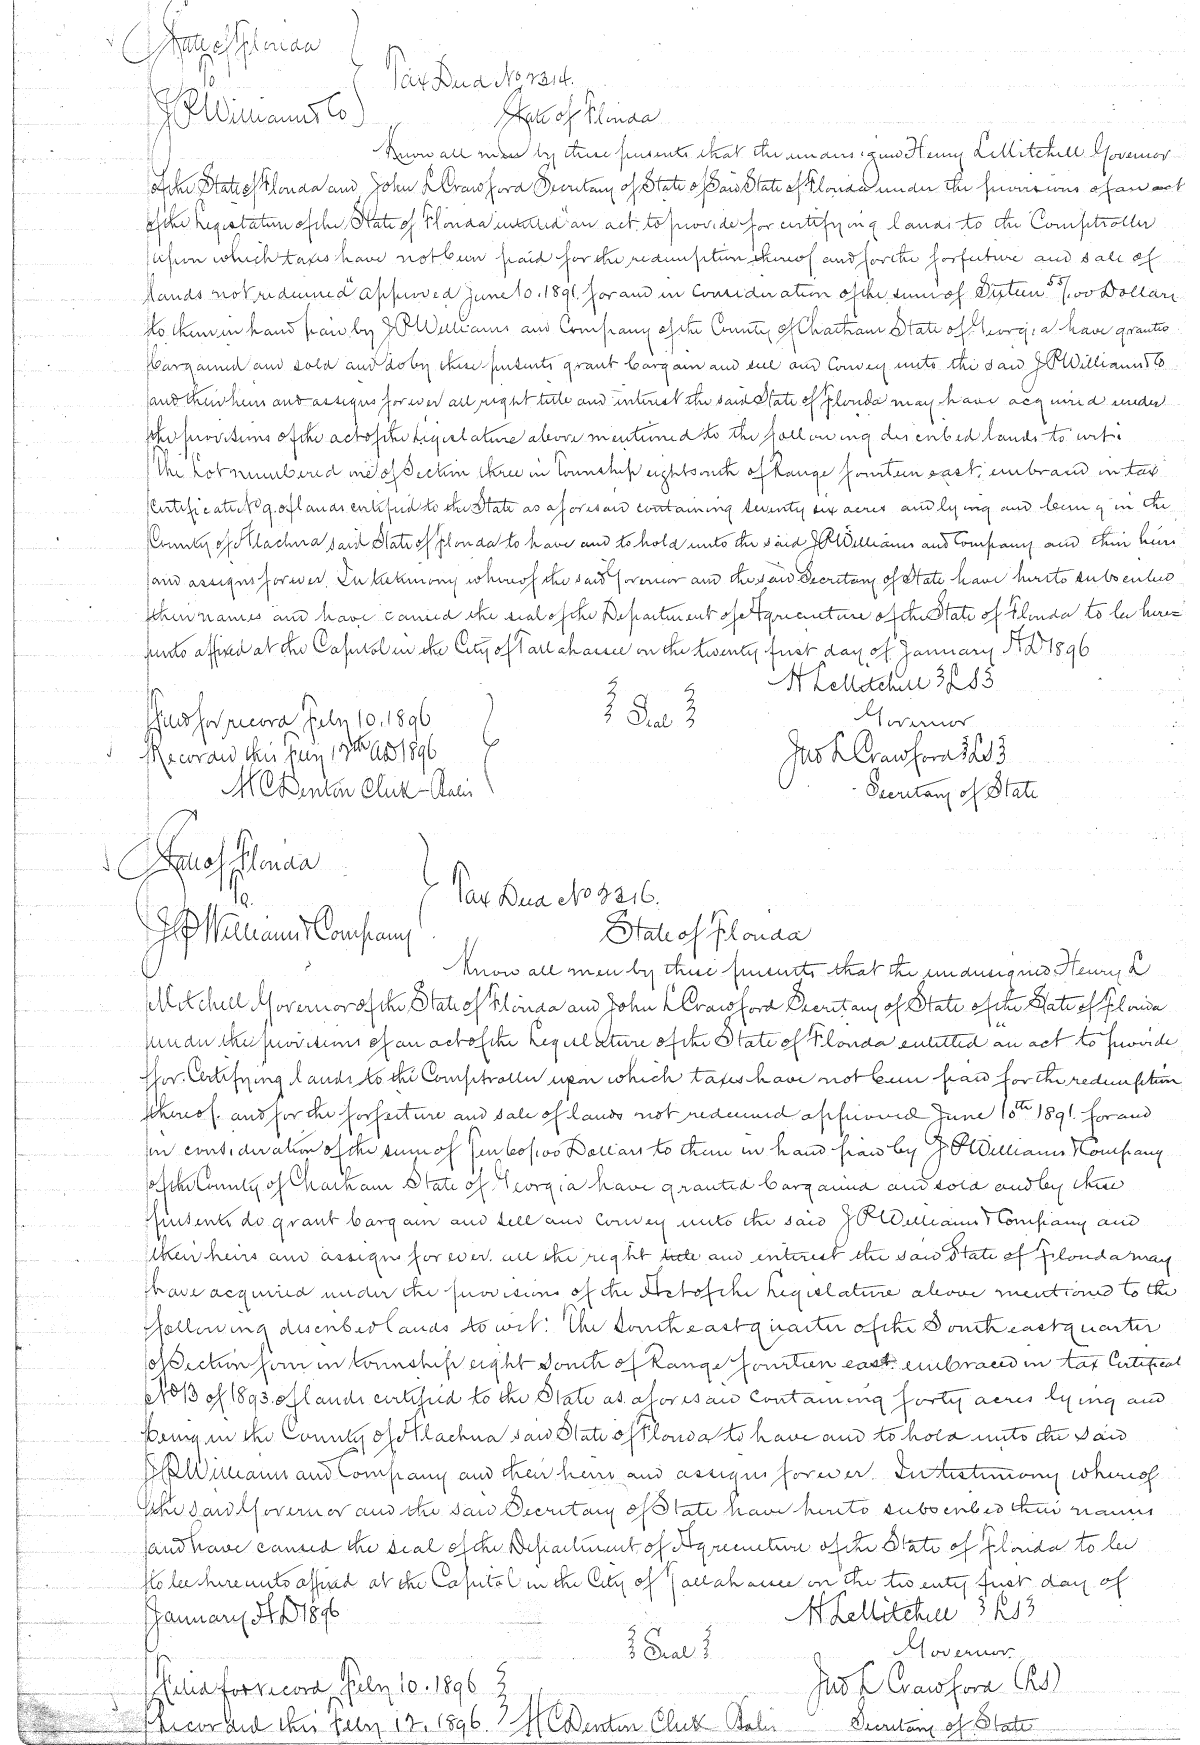 State of Florida
To
J P Williams & Co
Tax Deed No 2314.
State of Florida
Know all men by these presents that the undersigned Henry L Mitchell Governor
of the State of Florida and John L Crawford Secretary of State of Said State of Florida under the provisions of an act
of the Legislature of the State of Florida entitled "an act to provide for certifying lands to the Comptroller
upon which taxes have not been paid for the redemption thereof and for the forfeiture and sale of
lands not redeemed" approved June 10. 1891. for and in consideration of the sum of Sixteen 55/100 Dollars
to them in hand paid by J P Williams and Company of the County of Chatham State of Georgia have granted
bargained and sold and do by these presents grant bargain and sell and convey unto the said J P Williams & Co
and their heirs and assigns forever all right title and interest the said State of Florida may have acquired under
the provisions of the act of the Legislature above mentioned to the following described lands to wit:
The Lot numbered one of Section three in Township eight south of Range fourteen east. embraced in tax
Certificate No 9. of lands certified to the State as aforesaid containing seventy six acres and lying and being in the
County of Alachua said State of Florida to have and to hold unto the said J P Williams and Company and their heirs
and assigns forever. In testimony whereof the said Governor and the said Secretary of State have hereto subscribed
their names and have caused the seal of the Department of Agriculture of the State of Florida to be here=
unto affixed at the Capitol in the City of Tallahassee on the twenty first day of January A D 1896
H L Mitchell {LS}
Governor
{Seal}
Filed for record Feby 10. 1896
Recorded this Feby 12th AD 1896
Jno L Crawford {LS}
H C Denton Clerk
Secretary of State
State of Florida
To
J P Williams & Company
Tax Deed No 2316.
State of Florida
Know all men by these presents that the undersigned Henry L
Mitchell Governor of the State of Florida and John L Crawford Secretary of State of the State of Florida
under the provisions of an act of the Legislature of the State of Florida entitled "an act to provide
for Certifying lands to the Comptroller upon which taxes have not been paid for the redemption
thereof. and for the forfeiture and sale of lands not redeemed approved June 10th 1891. for and
in consideration of the sum of Ten 60/100 Dollars to them in hand paid by J P Williams & Company
of the County of Chatham State of Georgia have granted bargained and sold and by these
presents do grant bargain and sell and convey unto the said J P Williams & Company and
their heirs and assigns forever. all the right title and interest the said State of Florida may
have acquired under the provisions of the Act of the Legislature above mentioned to the
following described lands to wit: The South east quarter of the South east quarter
of Section four in township eight South of Range fourteen east. embraced in tax Certificat
No 13 of 1893. of lands certified to the State as aforesaid containing forty acres lying and
being in the County of Alachua said State of Florida to have and to hold unto the said
J P Williams and Company and their heirs and assigns forever. In testimony whereof
the said Governor and the said Secretary of State have hereto subscribed their names
and have caused the seal of the Department of Agriculture of the State of Florida to be
to be hereunto affixed at the Capitol in the City of Tallahassee on the twenty first day of
January A D 1896
H L Mitchell {LS}
{Seal}
Governor.
Filed for record Feby 10. 1896
Jno L Crawford (LS)
Recorded this Feby 12. 1896. H C Denton Clerk
Secretary of State